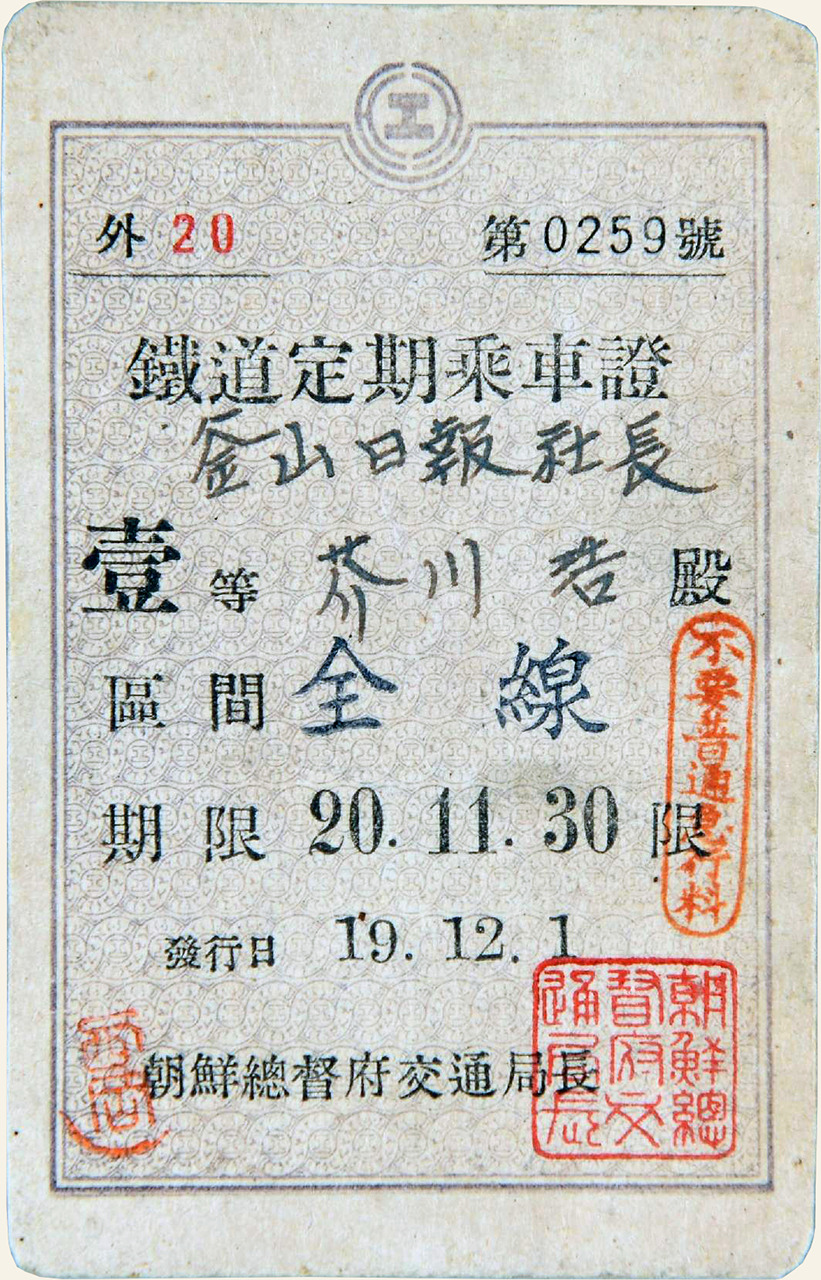 工
外 20 第0259號
鐵道定期乘車證
釜山日報社長
壹等 芥川 浩 殿
區間 全線
期限 20. 11. 30 限
不要普通急行料
發行日 19. 12. 1
朝鮮總督府交通局長
朝鮮總
督府交
通局長